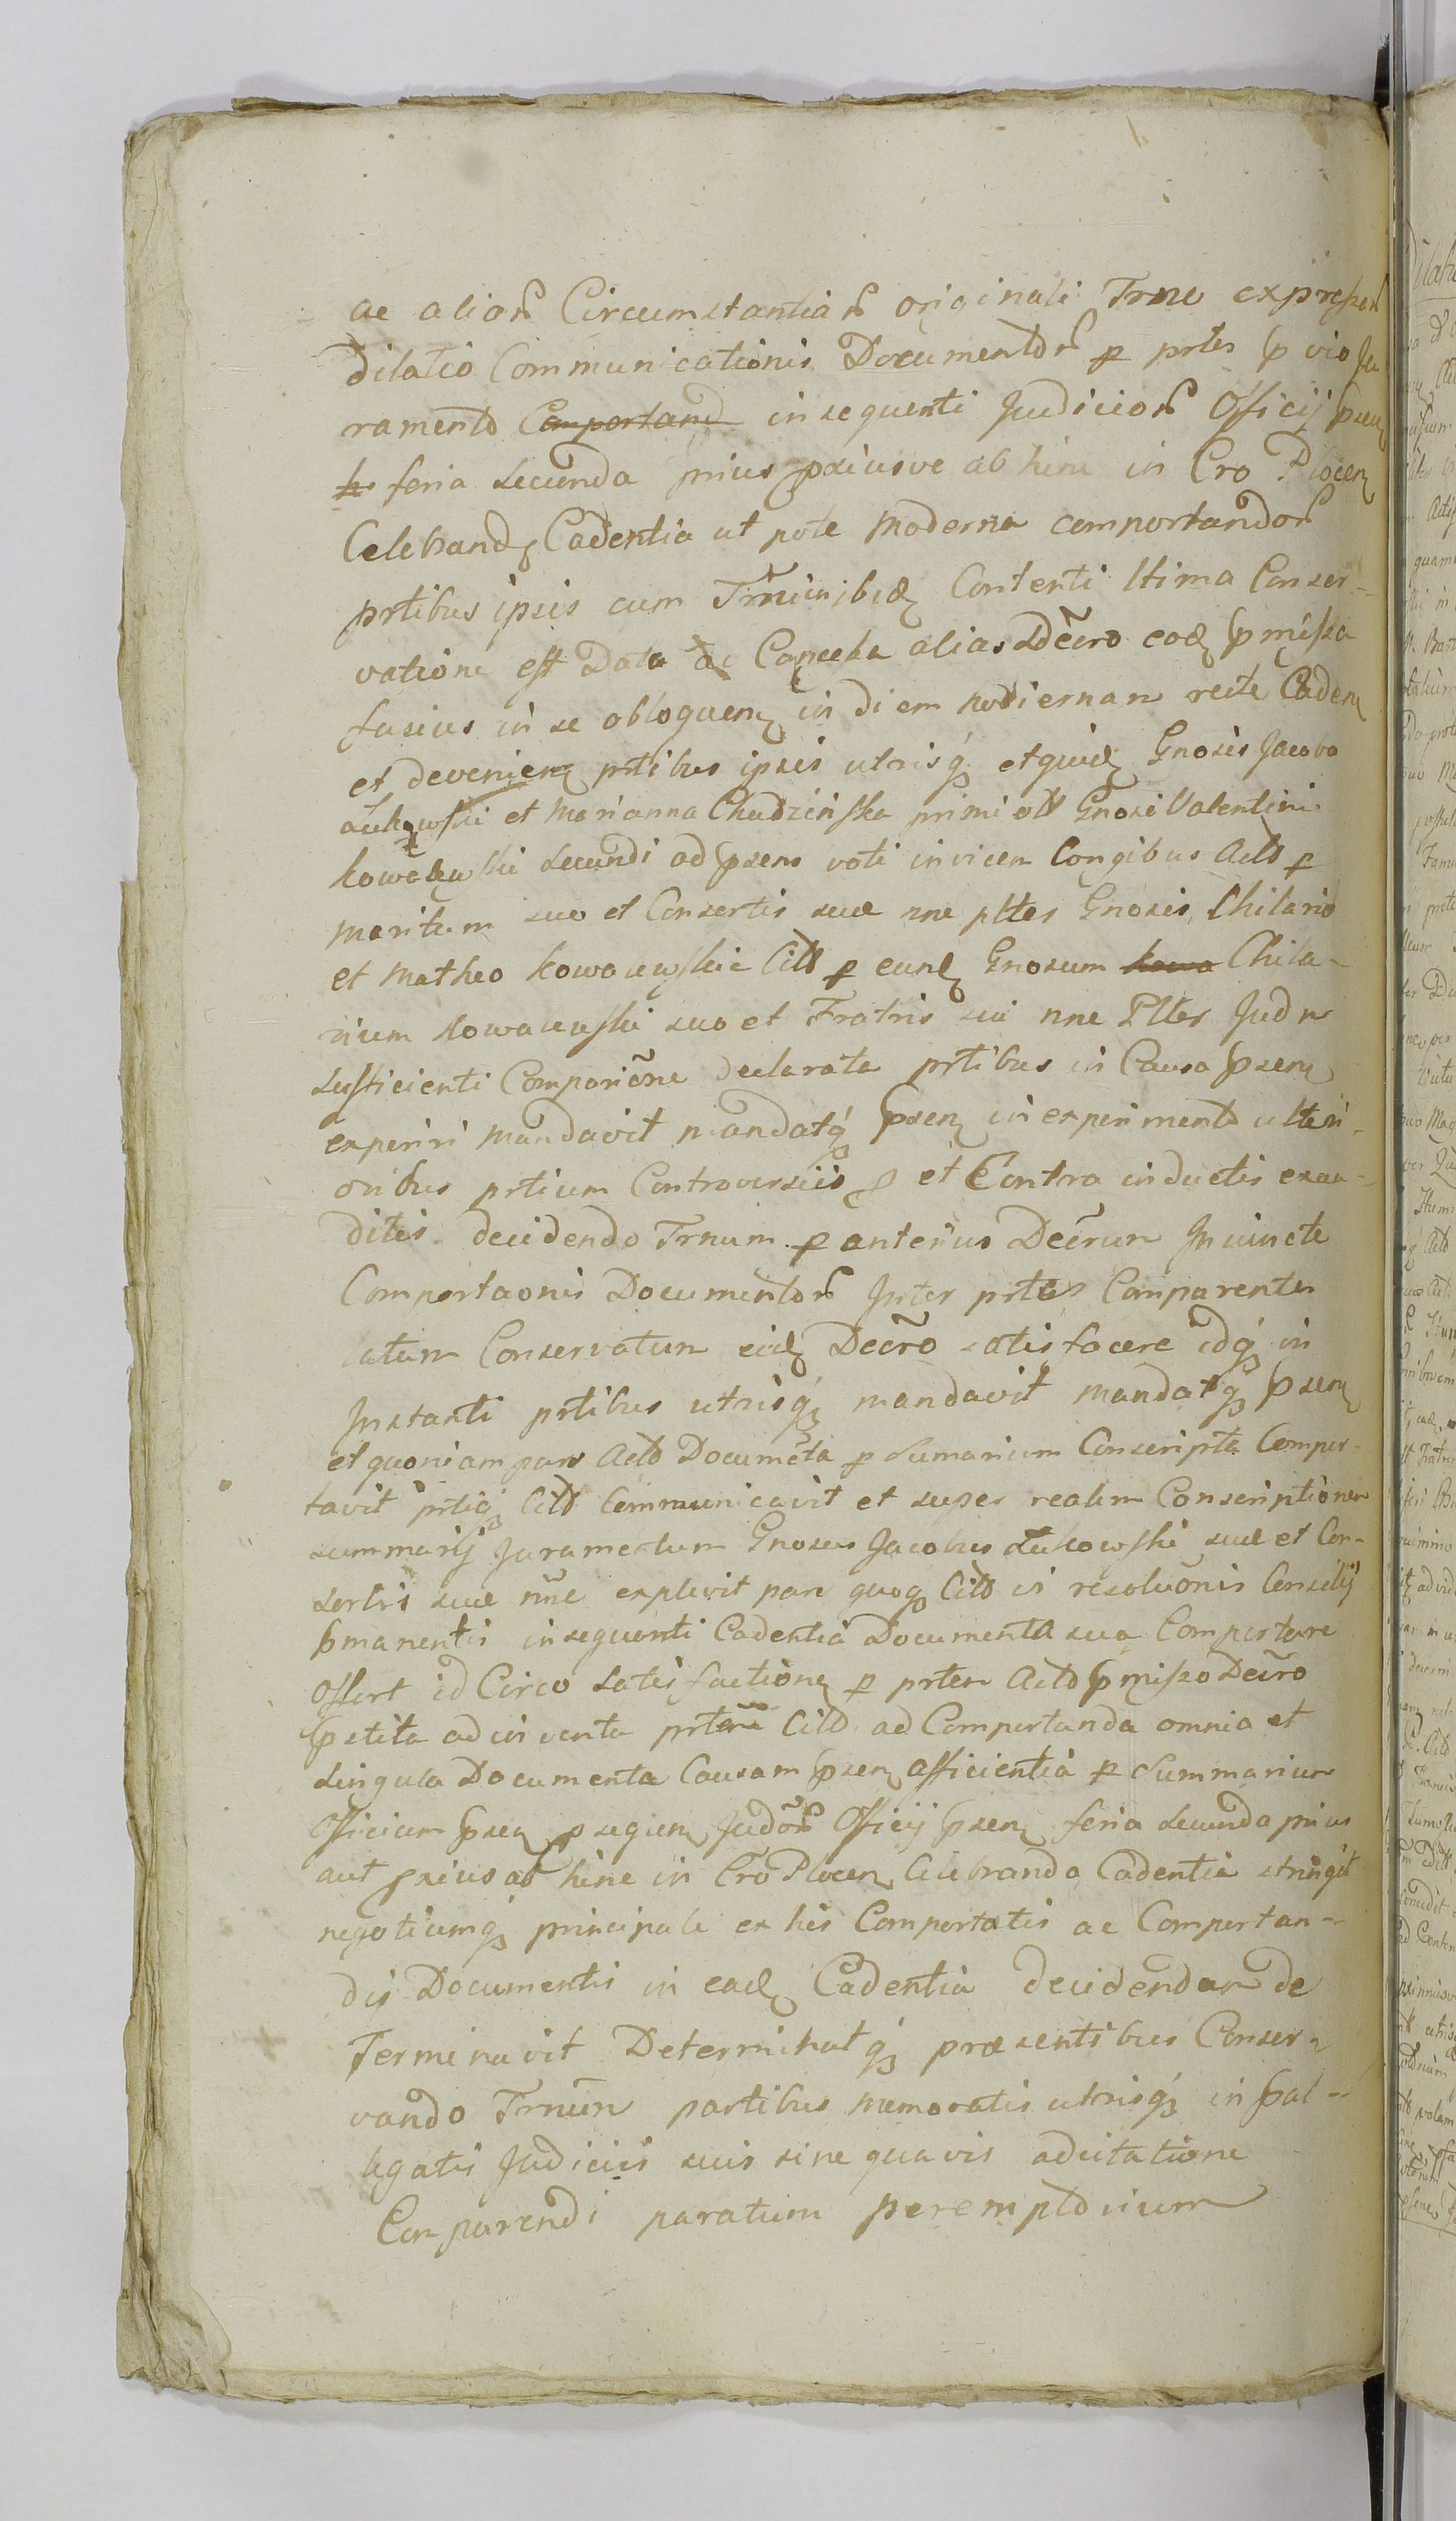 ac alior Circumstantiar originali Trno expressar
dilatio Communicationis Documentor p prtes p vio Ju
ramento Comportand in sequenti Judicior Officij psen
feria secunda prius pxiusve ab hinc in Cro Plocen
Celebrand Cadentia ut pote moderna comportandor
prtibus ipsis cum Trni inibid Contenti ltima Conser-
vatione est Data ac Concessa alias Decro eod pmissa
fusius in se obloquen in diem hodiernam recte Caden
et devenien prtibus ipsis utrisq etquid Gnosis Jacobo
Łukowski et Marianna Chudzińska primi olt Gnosi Valentini
Kowalewski secundi ad psens voti invicem Congibus Acto p
maritum suo et Consortis suae nne pltes Gnosis Chilario
et Matheo Kowalewskie Cito p eund Gnosum Kowa Chila-
rium Kowalewski suo et Fratris sui nne Pltes Jud
sufficienti Comparione declarata prtibus in Causa psen
experiri mandavit mandatq psen in experimento ulteri-
oribus prtium Controversiis p et Contra inductis exau-
ditis decidendo Trnum p anterius Decrum Injuncte
Comportaonis Documentor Inter prtes Comparentes
latum Conservatum eid Decro satisfacere idq in
Instanti prtibus utrisq mandavit mandatq psen
et quoniam pars Acto Documeta p Sumarium Conscripta Compor-
tavit prtiq Cito Communicavit et super realem Conscriptionem
summarij Juramentum Gnosus Jacobus Łukowski suae et Con-
sortis suae nne explevit pars quoq Cito vi resolutionis Consilij
pmanentis in sequenti Cadentia Documenta sua Comportare
Offert id Circo satisfactione p prtem Acto pmisso Decro
petita ad inventa prtem Cito ad Comportanda omnia et
singula Documenta Causam psen afficientia p Summarium
Officium psen p sequen Judor Officij psen feria secunda prius
aut pxius ab hinc in Cro Plocen Celebranda Cadentia stringit
negotiumq principale ex his Comportatis ac Comportan-
dis Documentis in ead Cadentia decidendum de
Terminavit Determinatq praesentibus Conser-
vando Trnum partibus memoratis utrisq in pal-
legatis Judiciis suis sine quavis adcitatione
Comparendi paratum peremptorium